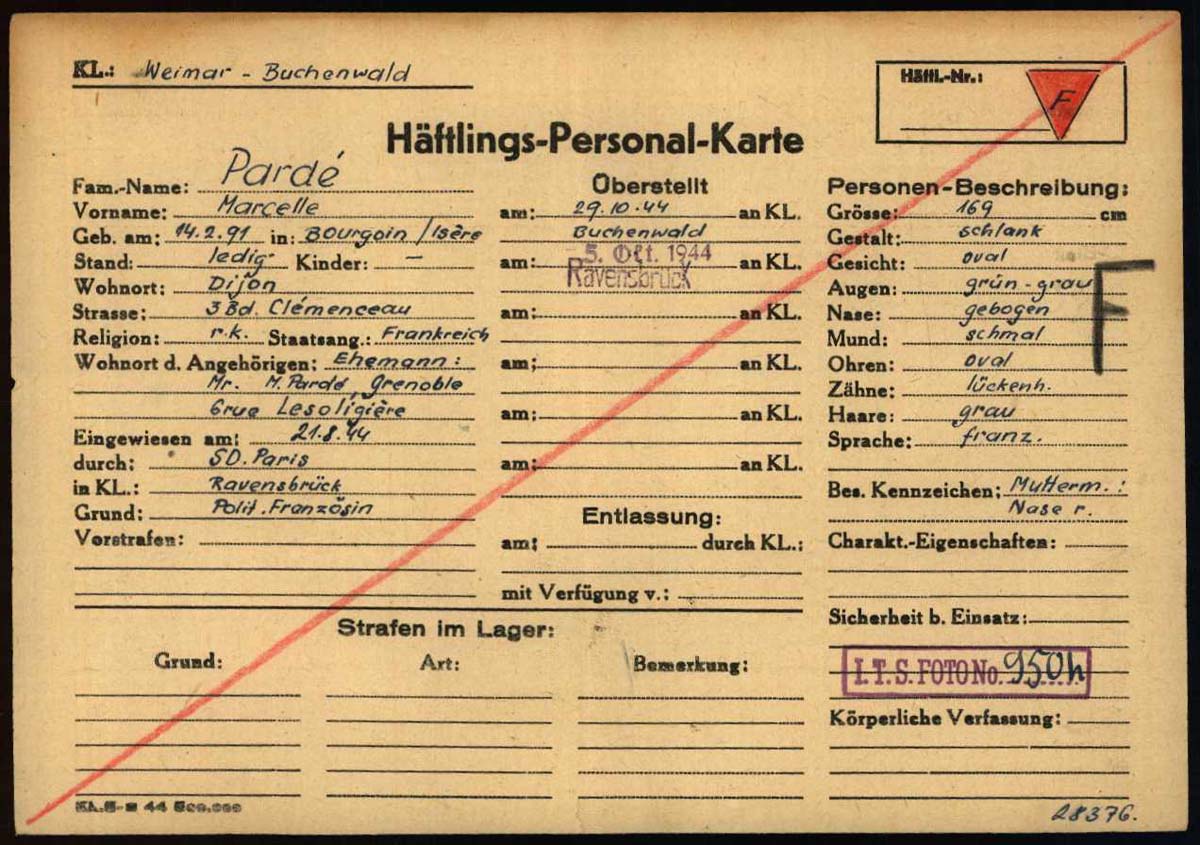 KL.: Weimar - Buchenwald
Häftl.-Nr.:
F
Häftlings-Personal-Karte
Fam.-Name: Pardé
Vorname: Marcelle
Geb. am: 14.2.91 in: Bourgoin / Isère
Stand: ledig Kinder: —
Wohnort: Dijon
Strasse: 3 Bd. Clémenceau
Religion: r.k. Staatsang.: Frankreich
Wohnort d. Angehörigen: Ehemann:
Mr. M. Pardé, Grenoble
6 rue Lesoligière
Eingewiesen am: 21.8.44
durch: SD. Paris
in KL.: Ravensbrück
Grund: Polit. Französin
Vorstrafen:
Überstellt
am: 29.10.44 an KL.
Buchenwald
am: 5. Okt. 1944 an KL.
Ravensbrück
am: an KL.
am: an KL.
am: an KL.
am: an KL.
Entlassung:
am: durch KL.:
mit Verfügung v.:
Personen-Beschreibung:
Grösse: 169 cm
Gestalt: schlank
Gesicht: oval
Augen: grün-grau
Nase: gebogen
Mund: schmal
Ohren: oval
Zähne: lückenh.
Haare: grau
Sprache: franz.
F
Bes. Kennzeichen: Mutterm.:
Nase r.
Charakt.-Eigenschaften:
Sicherheit b. Einsatz:
I.T.S. FOTO No. 950h
Körperliche Verfassung:
Strafen im Lager:
Grund: Art: Bemerkung:
28376.